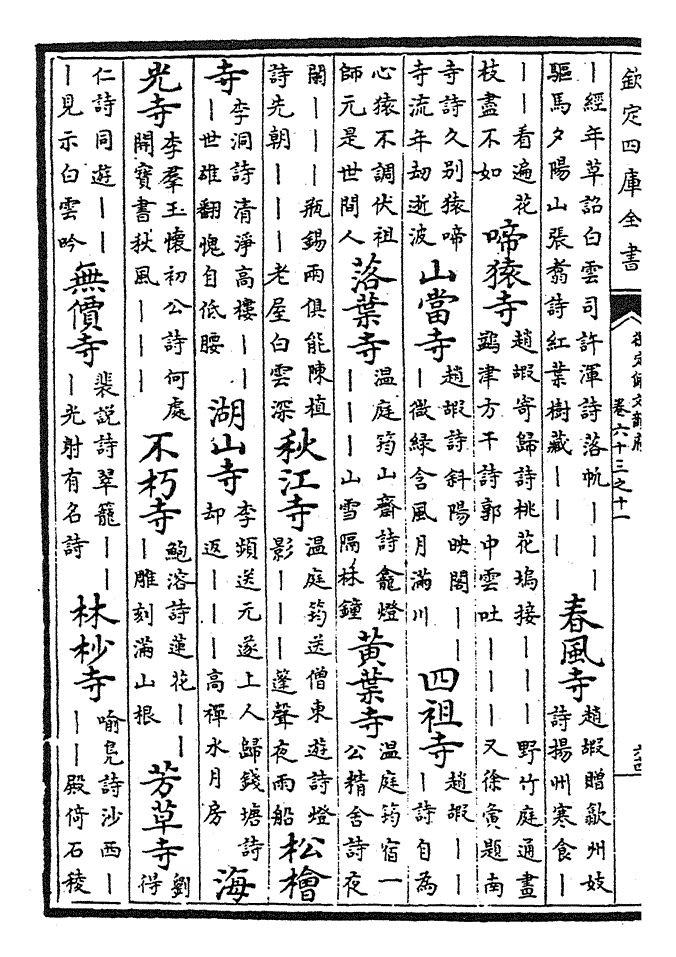 欽定四庫全書
御定佩文韻府
卷六十三之十一
六四
｜經年草詔白雲司許渾詩落帆｜｜｜
驅馬夕陽山張翥詩紅葉樹藏｜｜｜
春風寺
趙嘏贈歙州妓
詩揚州寒食｜
｜｜看遍花
枝盡不如
啼猿寺
趙嘏寄歸詩桃花塢接｜｜｜野竹庭通畫
鷁津方干詩郭中雲吐｜｜｜又徐夤題南
寺詩久别猿啼
寺流年劫逝波
山當寺
趙嘏詩斜陽映閣｜｜
｜微綠含風月滿川
四祖寺
趙嘏｜｜
｜詩自為
心猿不調伏祖
師元是世間人
落葉寺
温庭筠山齋詩龕燈
｜｜｜山雪隔林鐘
黃葉寺
温庭筠宿一
公精舍詩夜
闌｜｜｜瓶錫兩俱能陳植
詩先朝｜｜｜老屋白雲深
秋江寺
温庭筠送僧東遊詩燈
影｜｜｜蓬聲夜雨船
松檜
寺
李洞詩清淨高樓｜｜
｜世雄翻愧自低腰
湖山寺
李頻送元遂上人歸錢塘詩
却返｜｜｜高禪水月房
海
光寺
李羣玉懷初公詩何處
開寶書秋風｜｜｜
不朽寺
鮑溶詩蓮花｜｜
｜雕刻滿山根
芳草寺
劉
得
仁詩同遊｜｜
｜見示白雲吟
無價寺
裴説詩翠籠｜｜
｜光射有名詩
林杪寺
喻鳧詩沙西｜
｜｜殿倚石稜